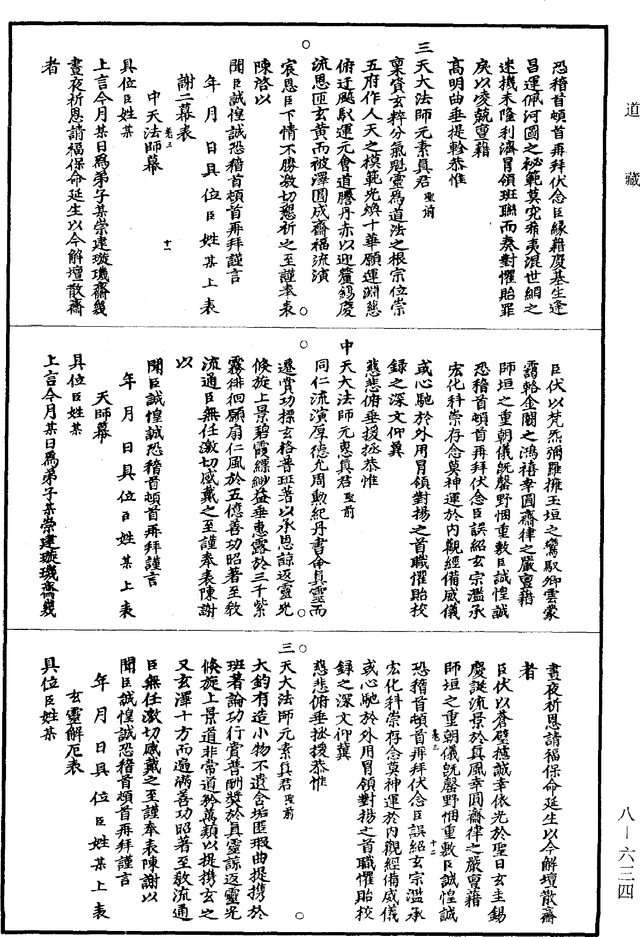 道藏
恐稽首頓首再拜伏念臣緣藉慶基生逢
昌運佩河圖之祕範莫究希夷混世網之
迷機未隆利濟冒領班聯而奏對懼貽罪
戾以凌兢亶藉
高明曲垂提軫恭惟
三天大法師元素真君聖前
稟資玄粹分氣魁靈為道法之根宗位崇
五府作人天之模範光煥十華願運淵慈
俯迂飈馭運元會道騰丹赤以迎釐錫慶
流恩匝玄黃而被澤圓成齋福流演
宸恩臣下情不勝激切懇祈之至謹奉表
陳啓以
聞臣誠惶誠恐稽首頓首再拜謹言
年月日具位臣姓某上表
謝二幕表
卷三
十一
中天法師幕
具位臣姓某
上言今月某日為弟子某崇建璇璣齋幾
晝夜祈恩請福保命延生以今解壇散齋
者
臣伏以梵炁彌羅擁玉垣之鸞馭卿雲藹
靄輅金闕之鴻禧幸圓齋律之嚴亶藉
師垣之重朝儀旣罄野悃重敷臣誠惶誠
恐稽首頓首再拜伏念臣誤紹玄宗濫承
宏化科崇存念莫神運於內觀經備威儀
或心馳於外用冒領對揚之首職懼貽校
錄之深文仰冀
慈悲俯垂援拯恭惟
中天大法師元惠真君聖前
同仁流演厚德光周勳紀丹書侖真靈而
遷賞功標玄格普班著以承恩諒返靈光
倏旋上景碧霞縹緲益垂惠露於三千紫
霧徘徊願扇仁風於五億善功昭著至敎
流通臣無任激切感戴之至謹奉表陳謝
以
聞臣誠惶誠恐稽首頓首再拜謹言
年月日具位臣姓某上表
天師幕
具位臣姓某
上言今月某日為弟子某崇建璇璣齋幾
晝夜祈恩請福保命延生以今解壇散齋
者
臣伏以蒼壁攄誠幸依光於聖日玄圭錫
慶誕流景於真風幸圓齋律之嚴亶藉
師垣之重朝儀旣罄野悃重敷臣誠惶誠
卷三
十二
恐稽首頓首再拜伏念臣誤紹玄宗濫承
宏化科崇存念莫神運於內觀經備威儀
或心馳於外用冒領對揚之首職懼貽校
錄之深文仰冀
慈悲俯垂拯援恭惟
三天大法師元素真君聖前
大鈞有造小物不遺含垢匿瑕曲提攜於
班著論功行賞普酬獎於真靈諒返靈光
倏旋上景道非常道於萬類以提攜玄之
又玄澤十方而遍滿善功昭著至敎流通
臣無任激切感戴之至謹奉表陳謝以
聞臣誠惶誠恐稽首頓首再拜謹言
年月日具位臣姓某上表
玄靈解厄表
具位臣姓某
八—六三四